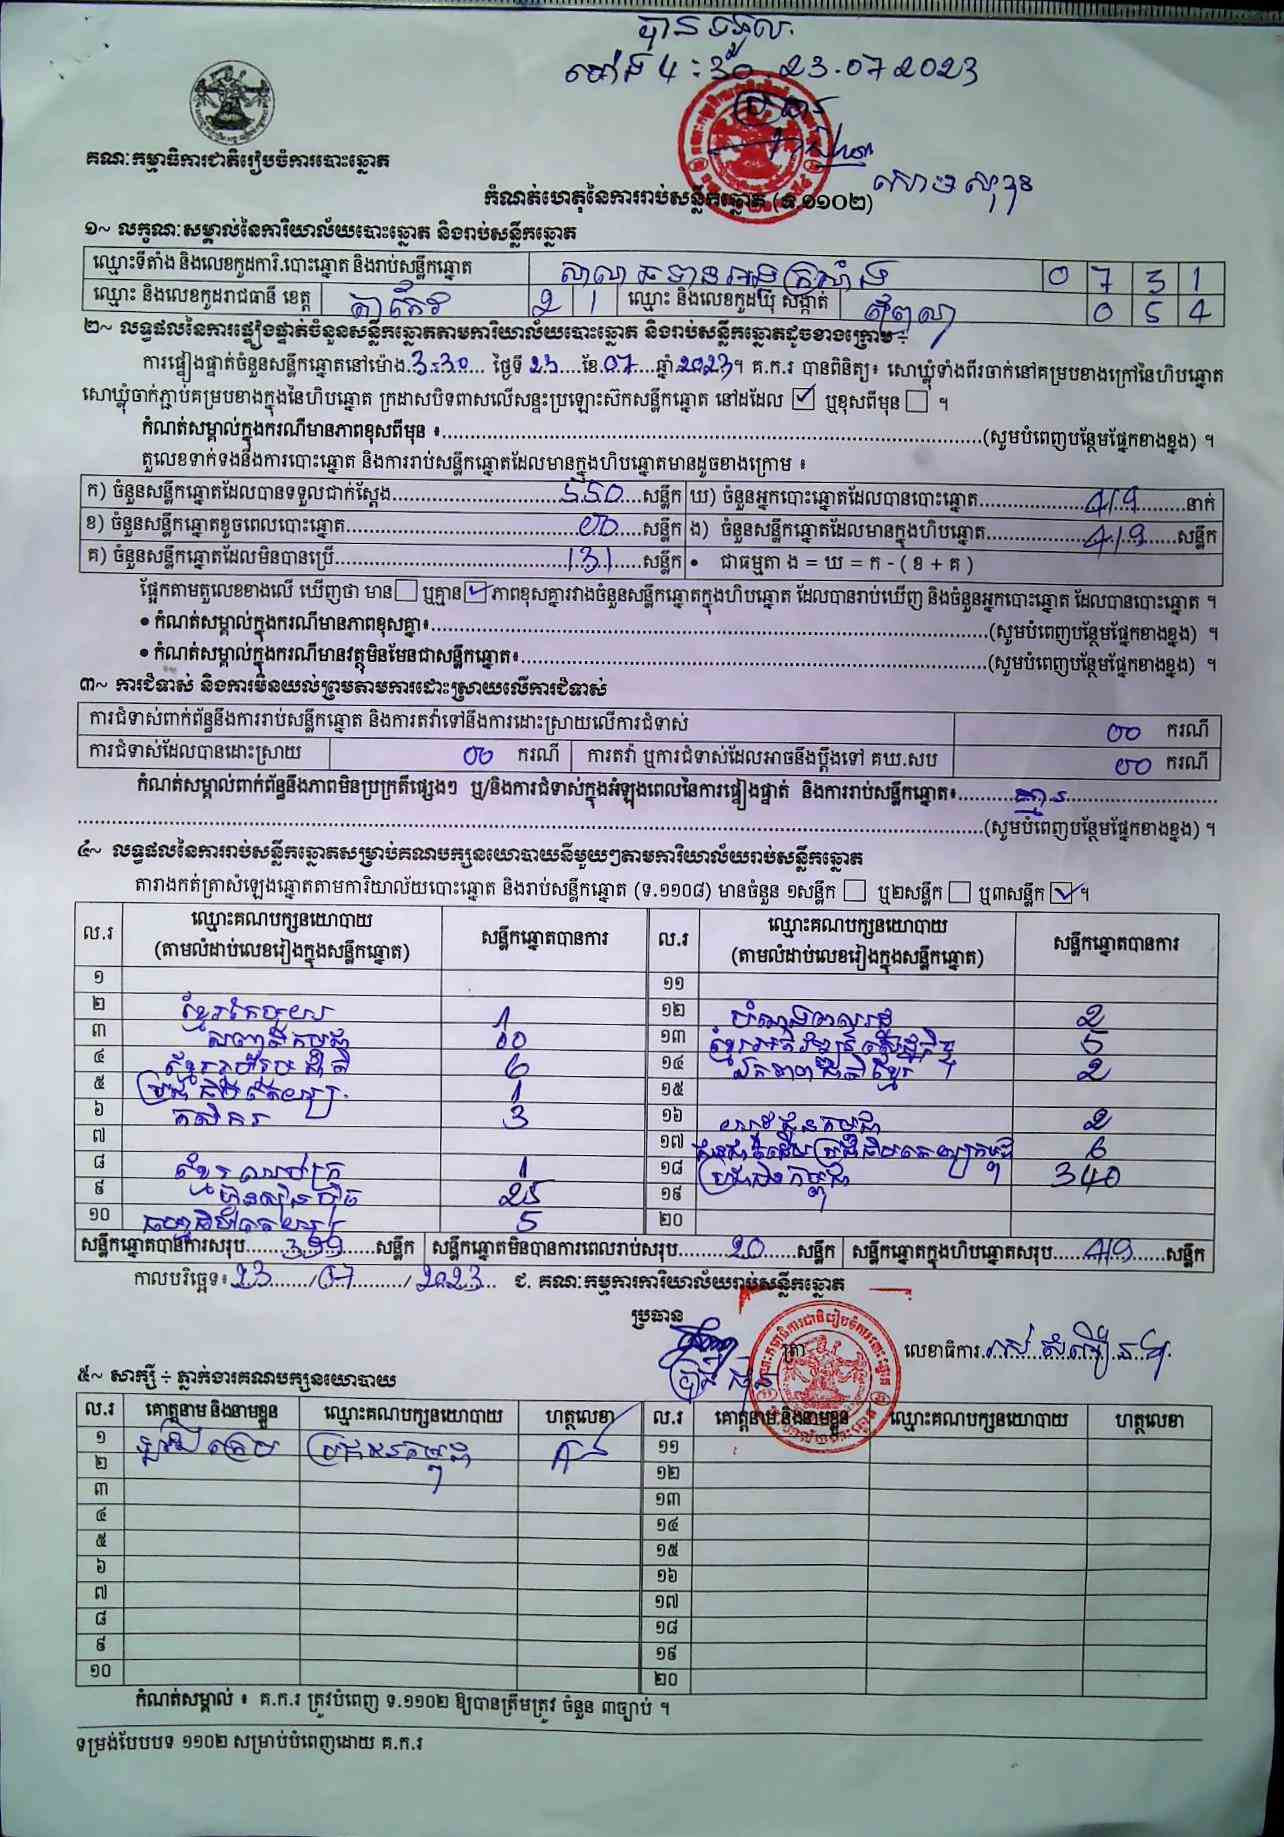 បានទទួល
ម៉ោង 4:30 23.07 2023
ប្រធាន
គណៈកម្មាធិការជាតិរៀបចំការបោះឆ្នោត
កំណត់ហេតុនៃការរាប់សន្លឹកឆ្នោត (ទ.១១០២)
១~ លក្ខណៈសម្គាល់នៃការិយាល័យបោះឆ្នោត និងរាប់សន្លឹកឆ្នោត
ឈ្មោះទីតាំង និងលេខកូដការិ.បោះឆ្នោត និងរាប់សន្លឹកឆ្នោត 0 7 3 1
ឈ្មោះ និងលេខកូដរាជធានី ខេត្ត តាកែវ 2 1 ឈ្មោះ និងលេខកូដឃុំ សង្កាត់ 0 5 4
២~ លទ្ធផលនៃការផ្ទៀងផ្ទាត់ចំនួនសន្លឹកឆ្នោតតាមការិយាល័យបោះឆ្នោត និងរាប់សន្លឹកឆ្នោតដូចខាងក្រោម ÷
ការផ្ទៀងផ្ទាត់ចំនួនសន្លឹកឆ្នោតនៅម៉ោង 3:30 ថ្ងៃទី 23 ខែ 07 ឆ្នាំ 2023។ គ.ក.រ បានពិនិត្យ៖ សោឃ្លុំទាំងពីរចាក់នៅគម្របខាងក្រៅនៃហិបឆ្នោត
សោឃ្លុំចាក់ភ្ជាប់គម្របខាងក្នុងនៃហិបឆ្នោត ក្រដាសបិទពាសលើសន្ទះប្រឡោះស៊កសន្លឹកឆ្នោត នៅដដែល ☑ ឬខុសពីមុន ☐ ។
កំណត់សម្គាល់ក្នុងករណីមានភាពខុសពីមុន ៖ (សូមបំពេញបន្ថែមផ្នែកខាងខ្នង) ។
តួលេខទាក់ទងនឹងការបោះឆ្នោត និងការរាប់សន្លឹកឆ្នោតដែលមានក្នុងហិបឆ្នោតមានដូចខាងក្រោម ៖
ក) ចំនួនសន្លឹកឆ្នោតដែលបានទទួលជាក់ស្តែង 550 សន្លឹក ឃ) ចំនួនអ្នកបោះឆ្នោតដែលបានបោះឆ្នោត 419 នាក់
ខ) ចំនួនសន្លឹកឆ្នោតខូចពេលបោះឆ្នោត 00 សន្លឹក ង) ចំនួនសន្លឹកឆ្នោតដែលមានក្នុងហិបឆ្នោត 419 សន្លឹក
គ) ចំនួនសន្លឹកឆ្នោតដែលមិនបានប្រើ 131 សន្លឹក • ជាធម្មតា ង = ឃ = ក - ( ខ + គ )
ផ្អែកតាមតួលេខខាងលើ ឃើញថា មាន ☐ ឬគ្មាន ☑ ភាពខុសគ្នារវាងចំនួនសន្លឹកឆ្នោតក្នុងហិបឆ្នោត ដែលបានរាប់ឃើញ និងចំនួនអ្នកបោះឆ្នោត ដែលបានបោះឆ្នោត ។
• កំណត់សម្គាល់ក្នុងករណីមានភាពខុសគ្នា៖ (សូមបំពេញបន្ថែមផ្នែកខាងខ្នង) ។
• កំណត់សម្គាល់ក្នុងករណីមានវត្ថុមិនមែនជាសន្លឹកឆ្នោត៖ (សូមបំពេញបន្ថែមផ្នែកខាងខ្នង) ។
៣~ ការជំទាស់ និងការមិនយល់ព្រមតាមការដោះស្រាយលើការជំទាស់
ការជំទាស់ពាក់ព័ន្ធនឹងការរាប់សន្លឹកឆ្នោត និងការតវ៉ាទៅនឹងការដោះស្រាយលើការជំទាស់ 00 ករណី
ការជំទាស់ដែលបានដោះស្រាយ 00 ករណី ការតវ៉ា ឬការជំទាស់ដែលអាចនឹងប្តឹងទៅ គឃ.សប 00 ករណី
កំណត់សម្គាល់ពាក់ព័ន្ធនឹងភាពមិនប្រក្រតីផ្សេងៗ ឬ/និងការជំទាស់ក្នុងអំឡុងពេលនៃការផ្ទៀងផ្ទាត់ និងការរាប់សន្លឹកឆ្នោត៖ គ្មាន
(សូមបំពេញបន្ថែមផ្នែកខាងខ្នង) ។
៤~ លទ្ធផលនៃការរាប់សន្លឹកឆ្នោតសម្រាប់គណបក្សនយោបាយនីមួយៗតាមការិយាល័យរាប់សន្លឹកឆ្នោត
តារាងកត់ត្រាសំឡេងឆ្នោតតាមការិយាល័យបោះឆ្នោត និងរាប់សន្លឹកឆ្នោត (ទ.១១០៨) មានចំនួន ១សន្លឹក ☐ ឬ២សន្លឹក ☐ ឬ៣សន្លឹក ☑ ។
ល.រ ឈ្មោះគណបក្សនយោបាយ (តាមលំដាប់លេខរៀងក្នុងសន្លឹកឆ្នោត) សន្លឹកឆ្នោតបានការ ល.រ ឈ្មោះគណបក្សនយោបាយ (តាមលំដាប់លេខរៀងក្នុងសន្លឹកឆ្នោត) សន្លឹកឆ្នោតបានការ
១ ១១
២ ខ្មែរតែមួយ 1 ១២ 2
៣ 00 ១៣ ខ្មែរអភិវឌ្ឍន៍សេដ្ឋកិច្ច 5
៤ ខ្មែររួបរួមជាតិ 6 ១៤ ឯកភាពជាតិខ្មែរ 2
៥ 1 ១៥
៦ កសិករ 3 ១៦ យុវជនកម្ពុជា 2
៧ ១៧ 6
៨ 1 ១៨ ប្រជាជនកម្ពុជា 340
៩ ហ៊្វុនស៊ិនប៉ិច 25 ១៩
១០ 5 ២០
សន្លឹកឆ្នោតបានការសរុប 399 សន្លឹក សន្លឹកឆ្នោតមិនបានការពេលរាប់សរុប 20 សន្លឹក សន្លឹកឆ្នោតក្នុងហិបឆ្នោតសរុប 419 សន្លឹក
កាលបរិច្ឆេទ៖ 23 / 07 / 2023 ជ. គណៈកម្មការការិយាល័យរាប់សន្លឹកឆ្នោត
ប្រធាន
ត្រា លេខាធិការ
៥~ សាក្សី ÷ ភ្នាក់ងារគណបក្សនយោបាយ
ល.រ គោត្តនាម និងនាមខ្លួន ឈ្មោះគណបក្សនយោបាយ ហត្ថលេខា ល.រ គោត្តនាម និងនាមខ្លួន ឈ្មោះគណបក្សនយោបាយ ហត្ថលេខា
១ ប្រជាជនកម្ពុជា ១១
២ ១២
៣ ១៣
៤ ១៤
៥ ១៥
៦ ១៦
៧ ១៧
៨ ១៨
៩ ១៩
១០ ២០
កំណត់សម្គាល់ ៖ គ.ក.រ ត្រូវបំពេញ ទ.១១០២ ឱ្យបានត្រឹមត្រូវ ចំនួន ៣ច្បាប់ ។
ទម្រង់បែបបទ ១១០២ សម្រាប់បំពេញដោយ គ.ក.រ